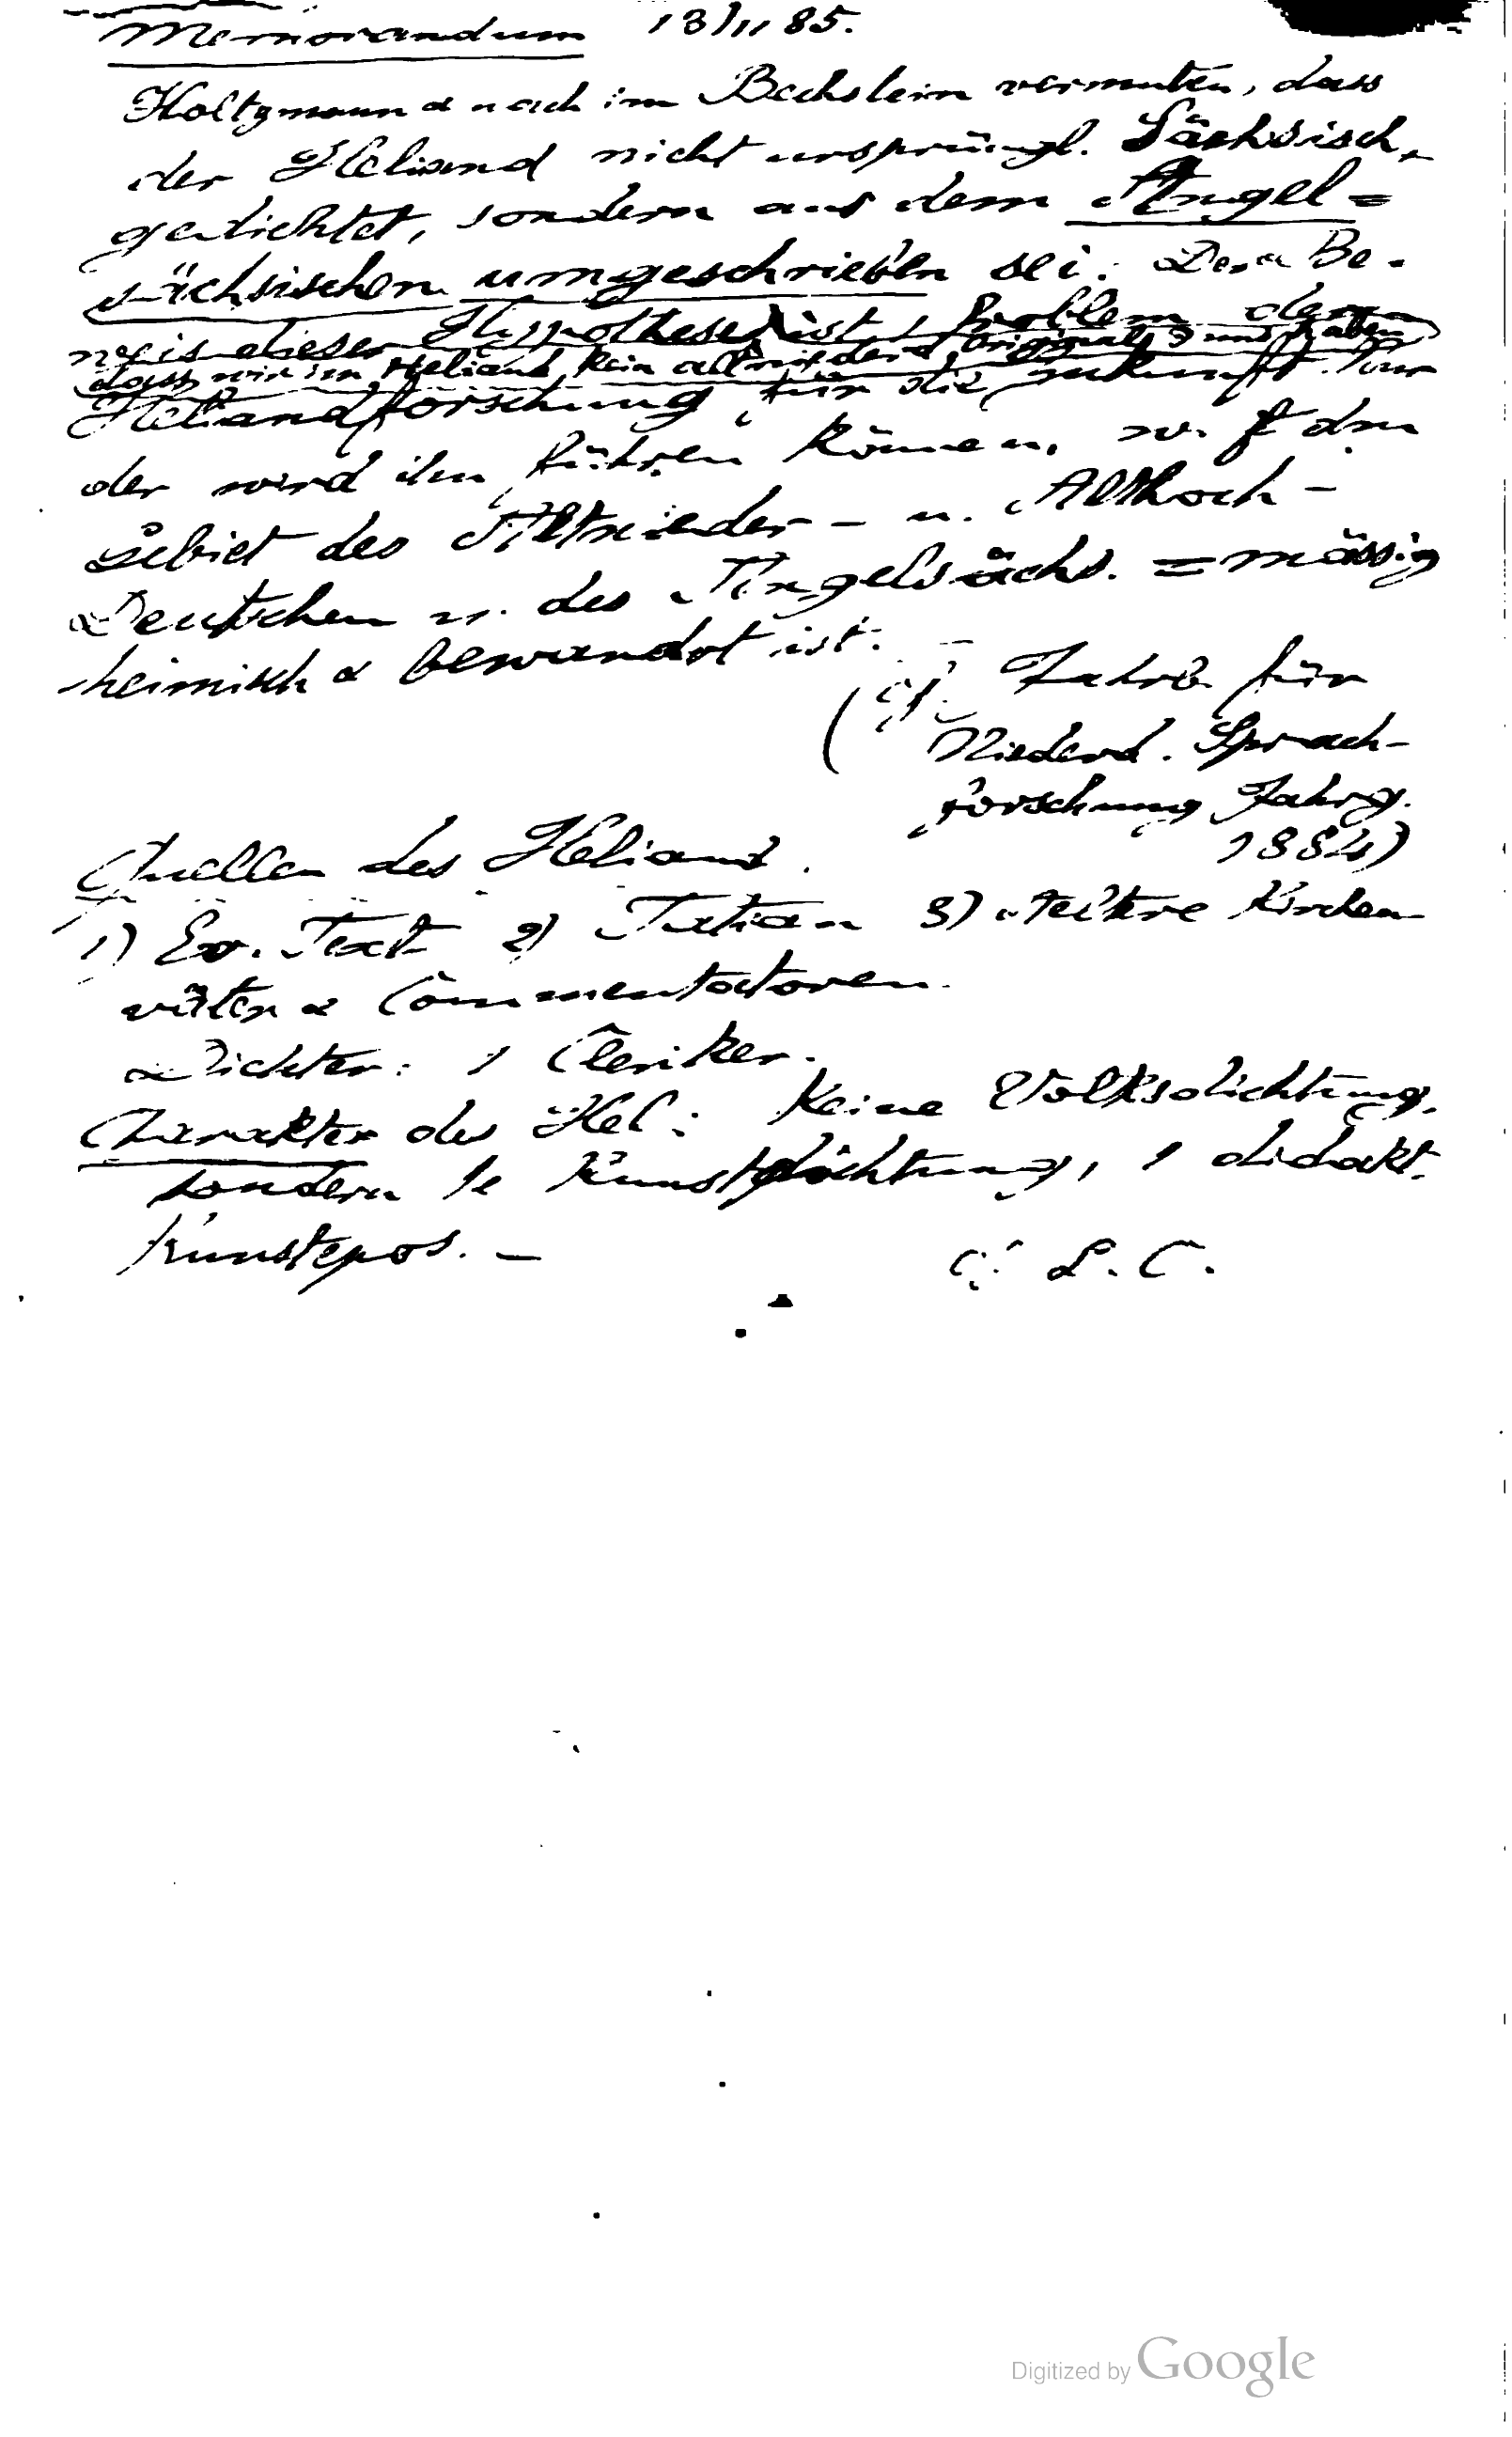 Memorandum 13/11 85.
Holtzmann & nach im Bechstein vermuten, dass
der Heliand nicht ursprüngl. Sächsisch
gedichtet, sondern aus dem Angel=
sächsischen umgeschrieben sei. Der Be-
weis dieser Hypothese ist 1 Problem der
dass wir im Heliand kein altniederd. Original und haben
Heliandforschung für die Zukunft. Nur
der wird ihn führen können, w. f dem
Gebiet des Altnieder- u. Althoch-
Deutschen u. des Angelsächs. = mässig
heimisch & bewandert ist. –
(cf. Jahrb für
Niederd. Sprach-
forschung Jahrg.
1884)
Quellen des Heliand.
1) Ev. Text 2) Tatian 3) Aeltere Kirchen
väter & Commentatoren.
Dichter: 1 Cleriker.
Charakter des Hel: Keine Volksdichtung,
sondern 1e Kunstdichtung, 1 didakt.
Kunstepos. –
L. C.
Digitized by Google